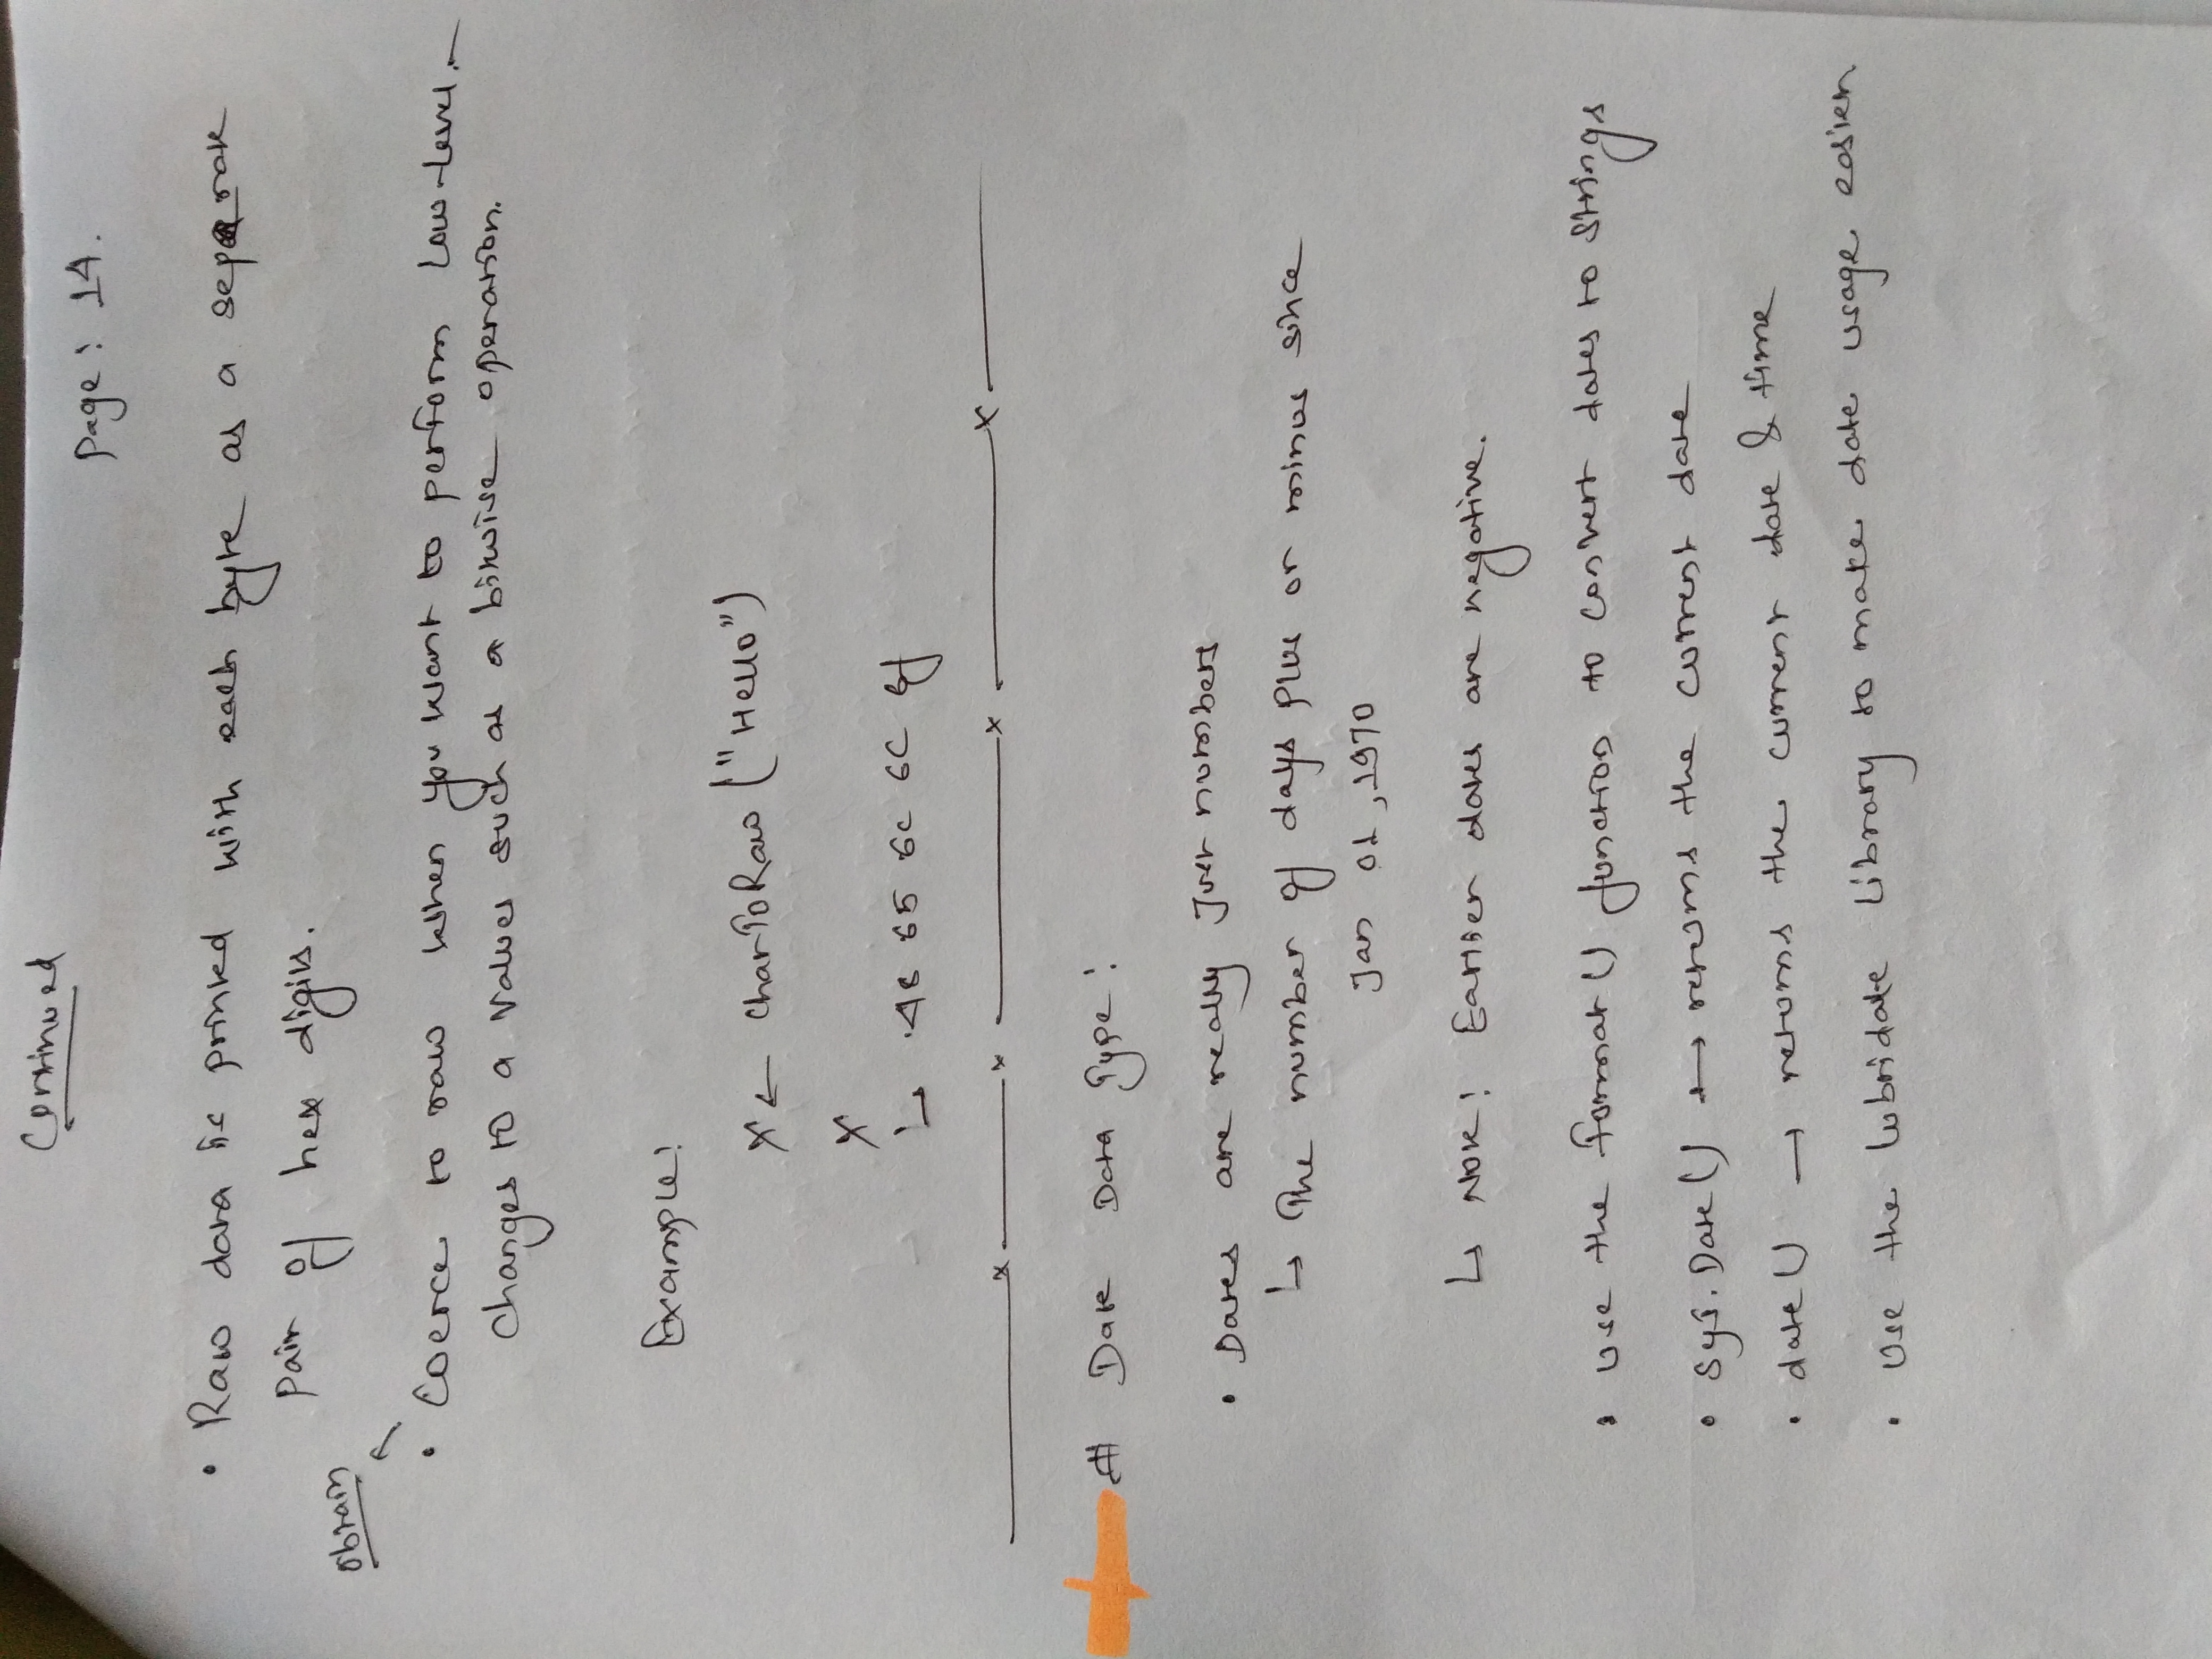 Continued
Page: 14.
• Raw data is printed with each byte as a separate
pair of hex digits.
obtain
• Coerce to raw when you want to perform low-level
changes to a value such as a bitwise operation.
Example:
X ← charToRaw ("Hello")
X
↳ 48 65 6c 6c 6f
# Date Data Type:
• Dates are really Just numbers
↳ The number of days plus or minus since
Jan 01, 1970
↳ Note: Earlier dates are negative.
• use the format() function to convert dates to strings
• Sys.Date() → returns the current date
• date() → returns the current date & time
• Use the lubridate library to make date usage easier